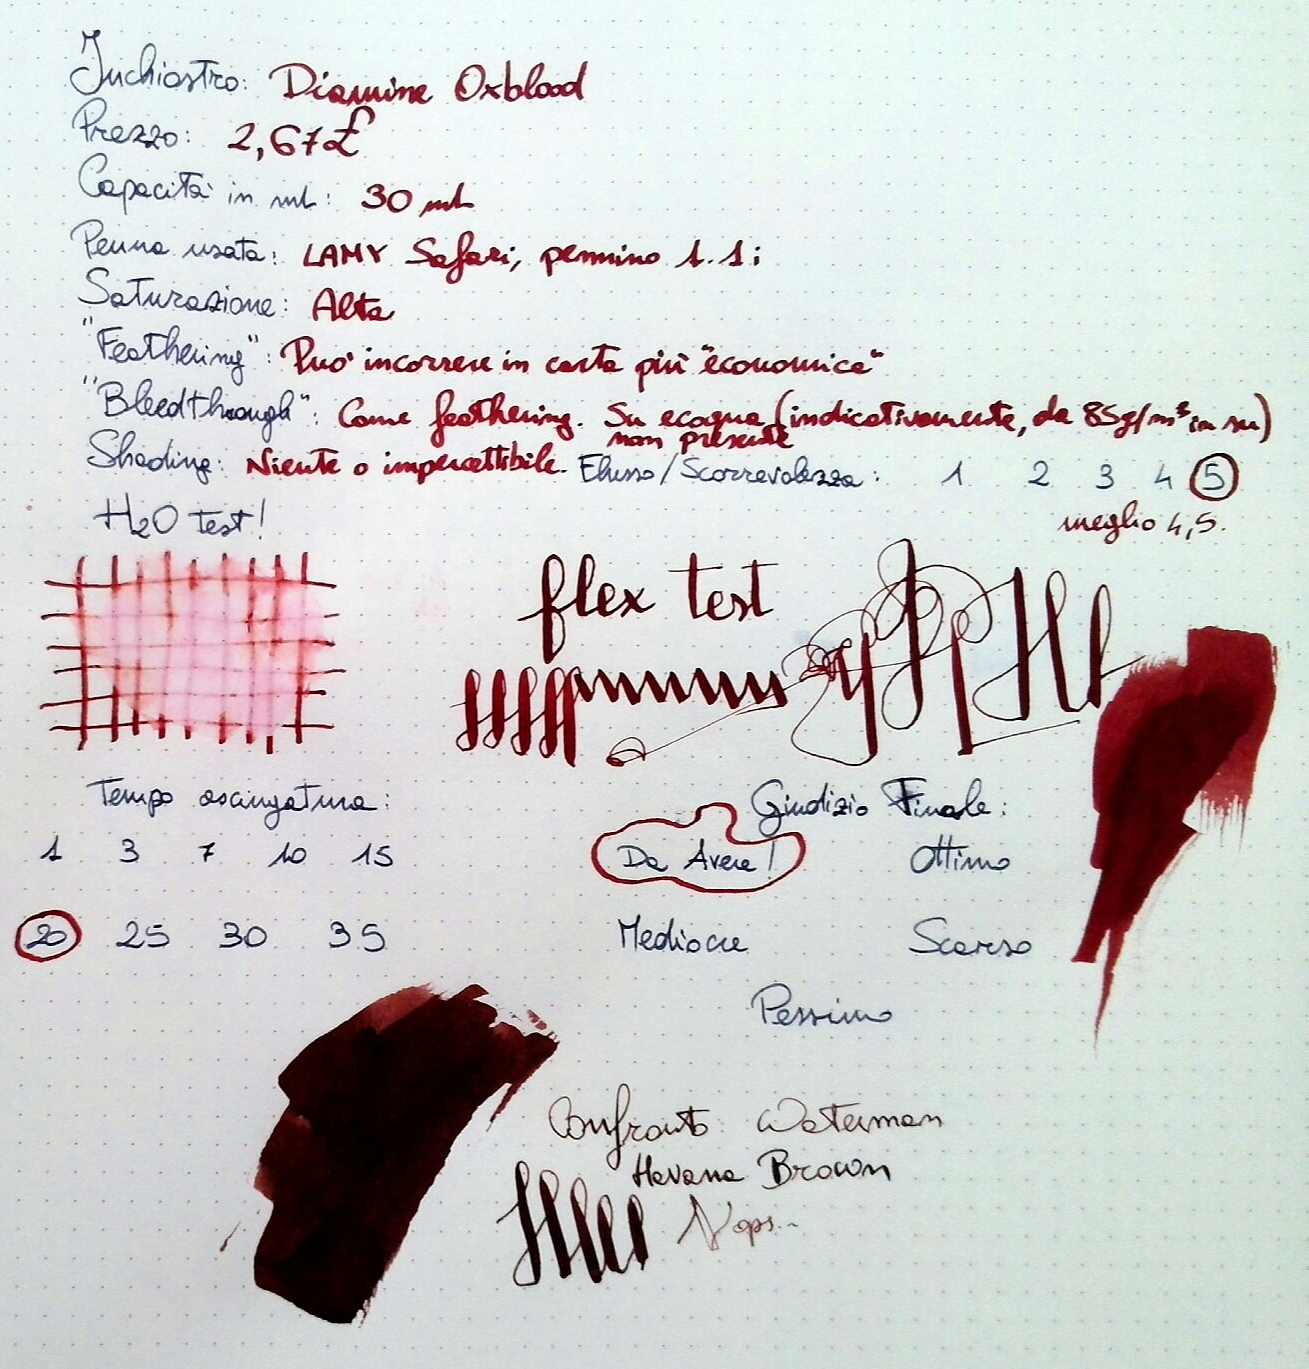 Inchiostro: Diamine Oxblood
Prezzo: 2,67£
Capacità in ml: 30 ml
Penna usata: LAMY Safari, pennino 1.1i
Saturazione: Alta
"Feathering": Può incorrere in carta più "economica"
"Bleedthrough": Come feathering. Su ecoqua (indicativamente, da 85g/m² in su)
non presente
Shading: Niente o impercettibile. Flusso/Scorrevolezza: 1 2 3 4 5
meglio 4,5.
H2O test!
flex test
Tempo asciugatura:
1 3 7 10 15
20 25 30 35
Giudizio Finale:
Da Avere! Ottimo
Mediocre Scarso
Pessimo
Confronto: Waterman
Havana Brown
Nops..